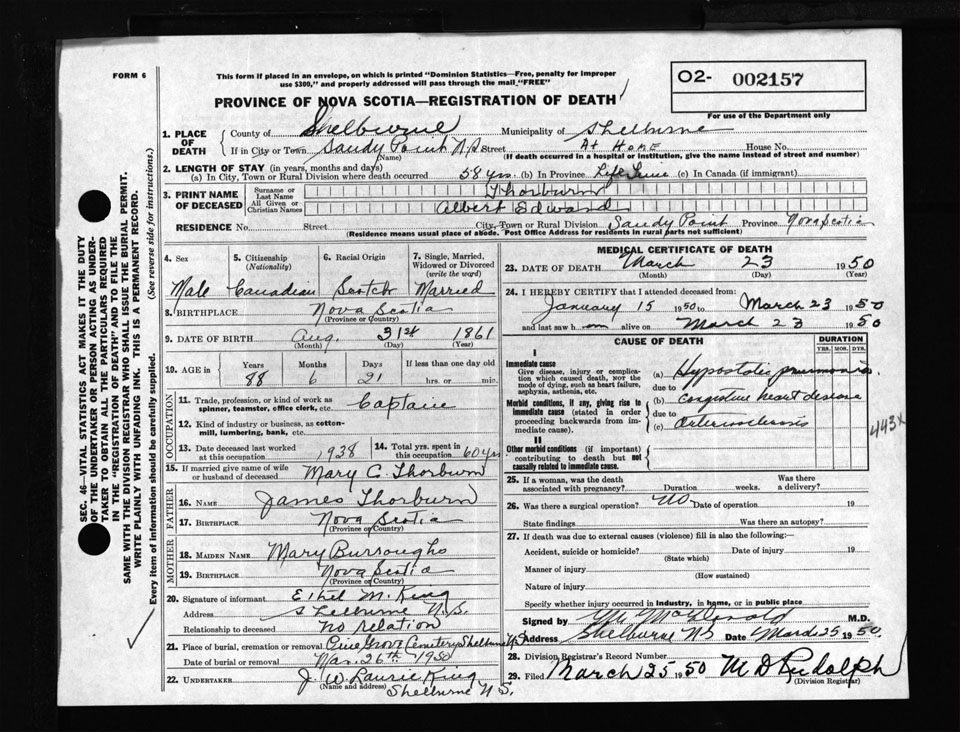 FORM 6
This form if placed in an envelope, on which is printed "Dominion Statistics—Free, penalty for improper
use $300," and properly addressed will pass through the mail "FREE"
O2- 002157
For use of the Department only
PROVINCE OF NOVA SCOTIA—REGISTRATION OF DEATH
1. PLACE OF DEATH County of Shelburne Municipality of Shelburne
If in City or Town Sandy Point N.S. Street At Home House No.
(Name) (If death occurred in a hospital or institution, give the name instead of street and number)
2. LENGTH OF STAY (in years, months and days)
(a) In City, Town or Rural Division where death occurred 58 yrs. (b) In Province Life Time (c) In Canada (if immigrant)
3. PRINT NAME OF DECEASED Surname or Last Name Thorburn
All Given or Christian Names Albert Edward
RESIDENCE No. Street City, Town or Rural Division Sandy Point Province Nova Scotia
(Residence means usual place of abode. Post Office Address for residents in rural parts not sufficient)
4. Sex 5. Citizenship (Nationality) 6. Racial Origin 7. Single, Married, Widowed or Divorced (write the word)
Male Canadian Scotch Married
8. BIRTHPLACE Nova Scotia
(Province or Country)
9. DATE OF BIRTH Aug. 31st 1861
(Month) (Day) (Year)
10. AGE in Years Months Days If less than one day old
88 6 21 hrs. or min.
OCCUPATION
11. Trade, profession or kind of work as spinner, teamster, office clerk, etc. Captain
12. Kind of industry or business, as cotton-mill, lumbering, bank, etc.
13. Date deceased last worked at this occupation 1938 14. Total yrs. spent in this occupation 60 yrs
15. If married give name of wife or husband of deceased Mary C. Thorburn
FATHER
16. NAME James Thorburn
17. BIRTHPLACE Nova Scotia
(Province or Country)
MOTHER
18. MAIDEN NAME Mary Burroughs
19. BIRTHPLACE Nova Scotia
(Province or Country)
20. Signature of informant Ethel M. King
Address Shelburne N.S.
Relationship to deceased no relation
21. Place of burial, cremation or removal Pine Grove Cemetery Shelburne N.S.
Date of burial or removal Mar. 26th 1950
22. UNDERTAKER J. W. Laurie King
(Name and address) Shelburne N.S.
MEDICAL CERTIFICATE OF DEATH
23. DATE OF DEATH March 23 1950
(Month) (Day) (Year)
24. I HEREBY CERTIFY that I attended deceased from:
January 15 1950 to March 23 1950
and last saw him alive on March 23 1950
CAUSE OF DEATH DURATION
YRS. MOS. DYS.
I
Immediate cause
Give disease, injury or complication which caused death, NOT the mode of dying, such as heart failure, asphyxia, asthenia, etc.
(a) Hypostatic pneumonia
due to
Morbid conditions, if any, giving rise to immediate cause (stated in order proceeding backwards from immediate cause).
(b) congestive heart disease
due to
(c) arteriosclerosis
443X
II
Other morbid conditions (if important) contributing to death but not causally related to immediate cause.
25. If a woman, was the death associated with pregnancy? Duration weeks. Was there a delivery?
26. Was there a surgical operation? No Date of operation 19
State findings Was there an autopsy?
27. If death was due to external causes (violence) fill in also the following:—
Accident, suicide or homicide? Date of injury 19
(State which)
Manner of injury
(How sustained)
Nature of injury
Specify whether injury occurred in industry, in home, or in public place
Signed by M. MacDonald M.D.
Address Shelburne NS Date March 25 1950
28. Division Registrar's Record Number
29. Filed March 25 1950 M D Rudolph
(Division Registrar)
SEC. 46—VITAL STATISTICS ACT MAKES IT THE DUTY
OF THE UNDERTAKER OR PERSON ACTING AS UNDER-
TAKER TO OBTAIN ALL THE PARTICULARS REQUIRED
IN THE "REGISTRATION OF DEATH" AND TO FILE THE
SAME WITH THE DIVISION REGISTRAR WHO SHALL ISSUE THE BURIAL PERMIT.
WRITE PLAINLY WITH UNFADING INK. THIS IS A PERMANENT RECORD.
Every item of information should be carefully supplied. (See reverse side for instructions.)